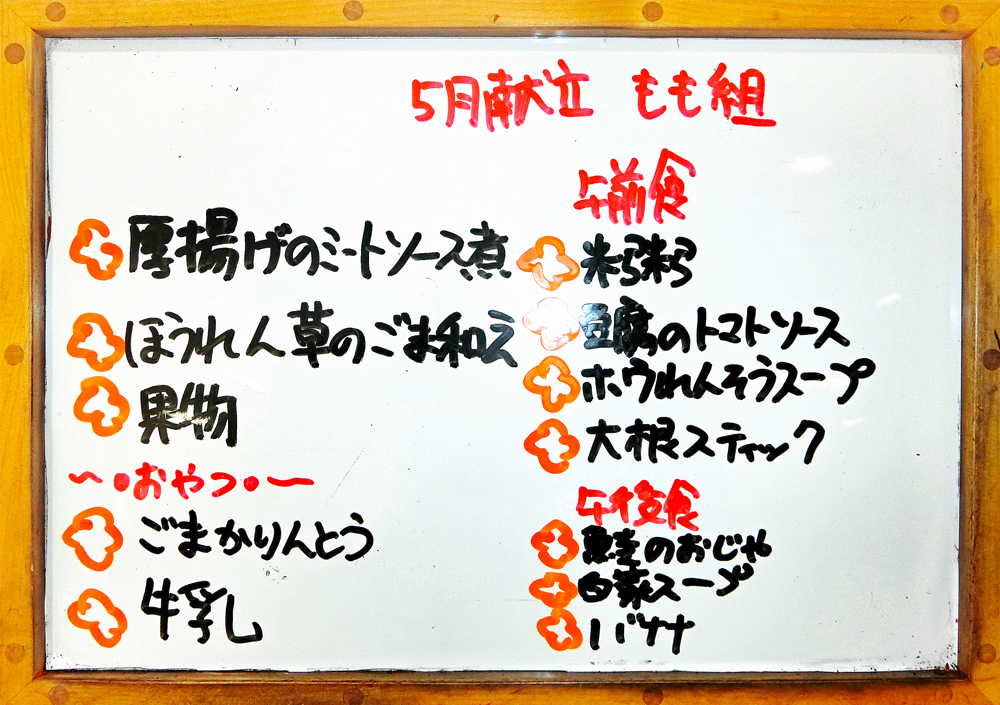 5月献立 もも組
厚揚げのミートソース煮
ほうれん草のごま和え
果物
〜・おやつ・〜
ごまかりんとう
牛乳
午前食
豆腐のトマトソース
ホウれんそうスープ
大根スティック
午後食
鮭のおじや
白菜スープ
バナナ